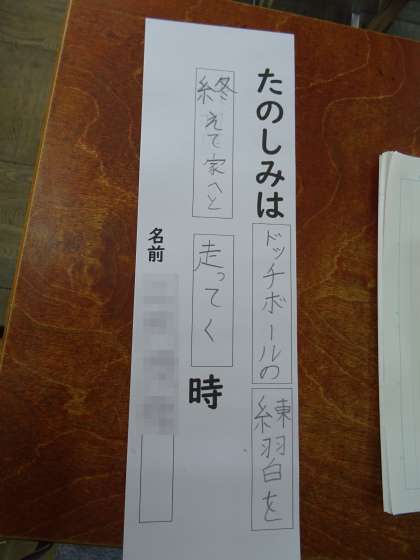 たのしみはドッチボールの練習を
終えて家へと走ってく時
名前